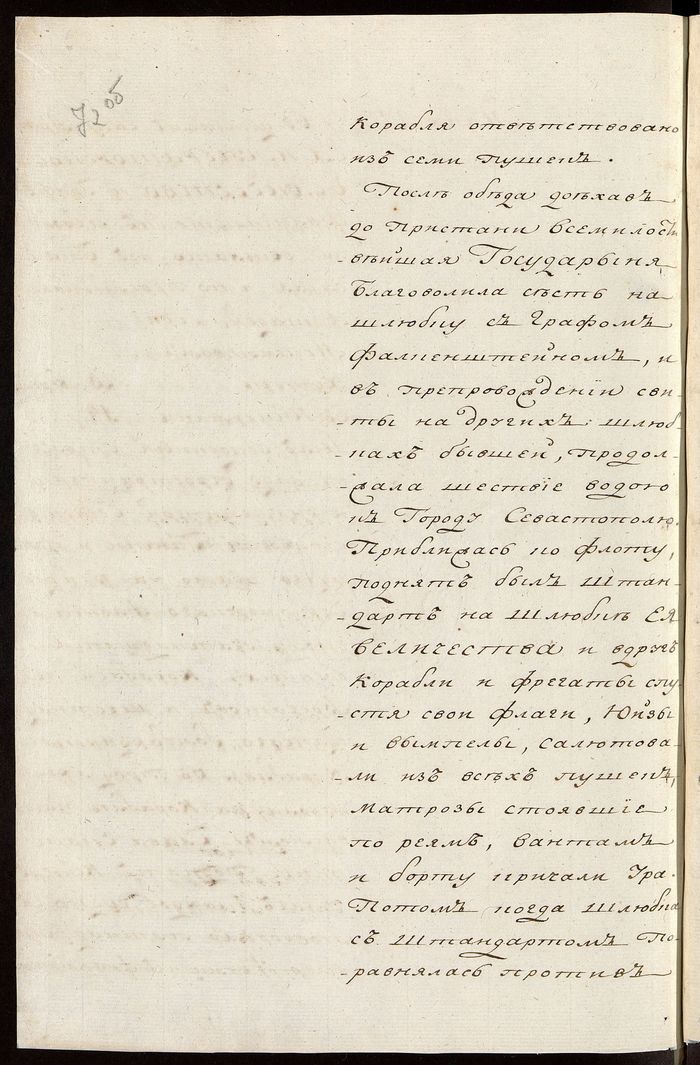 72 об
корабля отвѣтствовано
изъ семи пушекъ.
Послѣ обѣда доѣхавъ
до пристани Всемилост-
-вѣйшая Государыня,
Благоволила сѣсть на
шлюбку съ Графомъ
Фалкенштейномъ, и
въ препровожденіи сви-
-ты на другихъ шлюб-
-кахъ бывшей, продол-
-жала шествіе водою
къ Городу Севастополю.
Приближась ко флоту,
поднятъ былъ Штан-
-дартъ на Шлюбкѣ ЕЯ
ВЕЛИЧЕСТВА и вдругъ
корабли и фрегаты спу-
-стя свои флаги, Юйзы
и вымпелы, салютова-
-ли изъ всѣхъ пушекъ,
Матрозы стоявшіе
по реямъ, вантамъ
и борту кричали Ура.
Потомъ когда Шлюбка
съ Штандартомъ По-
-равнялась противъ